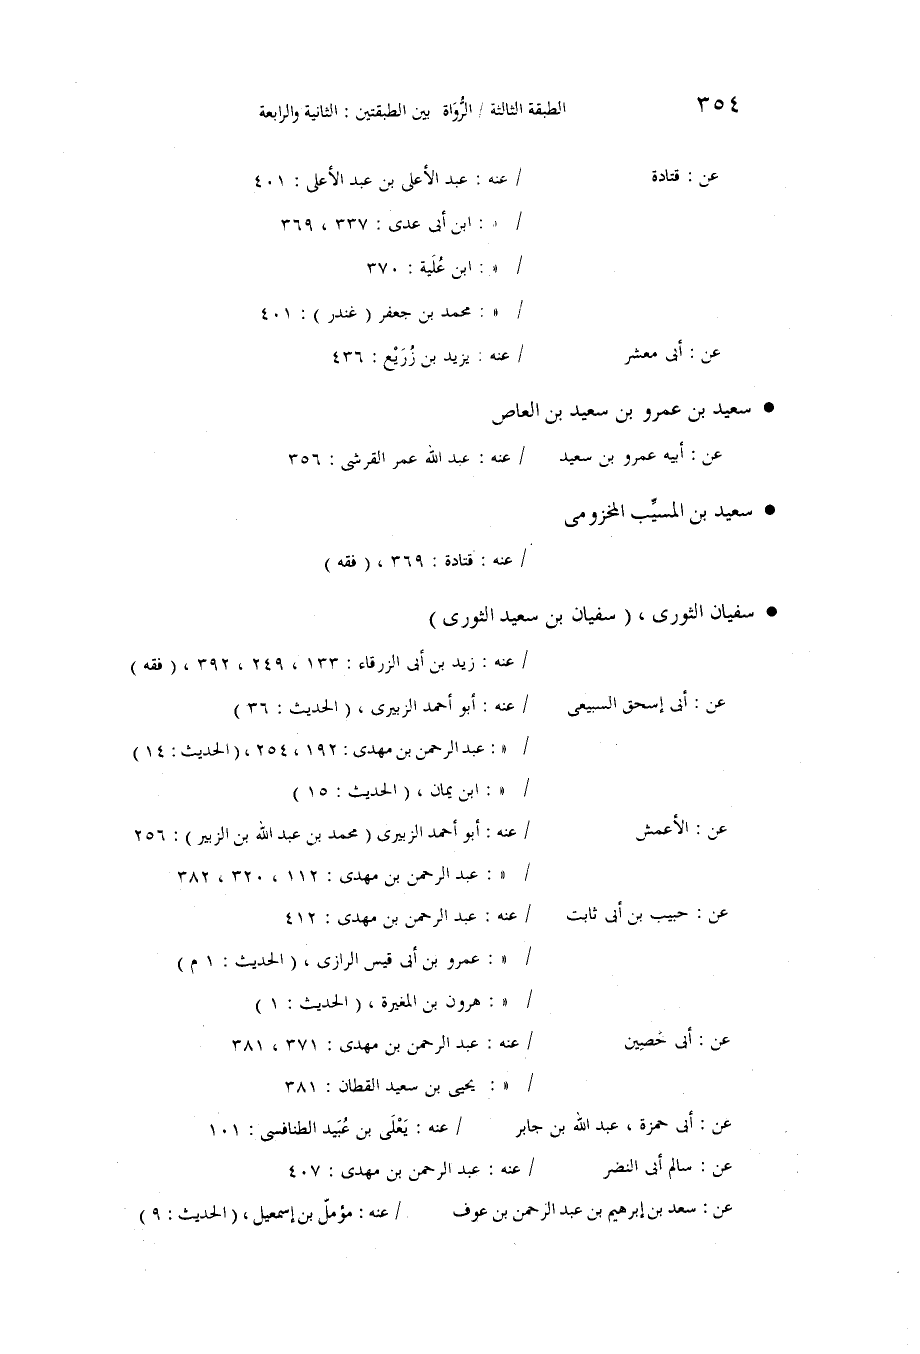 ٣٥٤ الطبقة الثالثة / الرُّوَاة بين الطبقتين : الثانية والرابعة
عن : قتادة / عنه : عبد الأعلى بن عبد الأعلى : ٤٠١
/ » : ابن أبى عدى : ٣٣٧ ، ٣٦٩
/ » : ابن عُلَية : ٣٧٠
/ » : محمد بن جعفر ( غندر ) : ٤٠١
عن : أبى معشر / عنه : يزيد بن زُرَيْع : ٤٣٦
● سعيد بن عمرو بن سعيد بن العاص
عن : أبيه عمرو بن سعيد / عنه : عبد الله عمر القرشى : ٣٥٦
● سعيد بن المسيِّب المخزومى
/ عنه : قتادة : ٣٦٩ ، ( فقه )
● سفيان الثورى ، ( سفيان بن سعيد الثورى )
/ عنه : زيد بن أبى الزرقاء : ١٣٣ ، ٢٤٩ ، ٣٩٢ ، ( فقه )
عن : أبى إسحق السبيعى / عنه : أبو أحمد الزبيرى ، ( الحديث : ٣٦ )
/ » : عبد الرحمن بن مهدى : ١٩٢ ، ٢٥٤ ، ( الحديث : ١٤ )
/ » : ابن يمان ، ( الحديث : ١٥ )
عن : الأعمش / عنه : أبو أحمد الزبيرى ( محمد بن عبد الله بن الزبير ) : ٢٥٦
/ » : عبد الرحمن بن مهدى : ١١٢ ، ٣٢٠ ، ٣٨٢
عن : حبيب بن أبى ثابت / عنه : عبد الرحمن بن مهدى : ٤١٢
/ » : عمرو بن أبى قيس الرازى ، ( الحديث : ١ م )
/ » : هرون بن المغيرة ، ( الحديث : ١ )
عن : أبى حَصِين / عنه : عبد الرحمن بن مهدى : ٣٧١ ، ٣٨١
/ » : يحيى بن سعيد القطان : ٣٨١
عن : أبى حمزة ، عبد الله بن جابر / عنه : يَعْلَى بن عُبَيد الطنافسى : ١٠١
عن : سالم أبى النضر / عنه : عبد الرحمن بن مهدى : ٤٠٧
عن : سعد بن إبرهيم بن عبد الرحمن بن عوف / عنه : مؤملّ بن إسمعيل ، ( الحديث : ٩ )